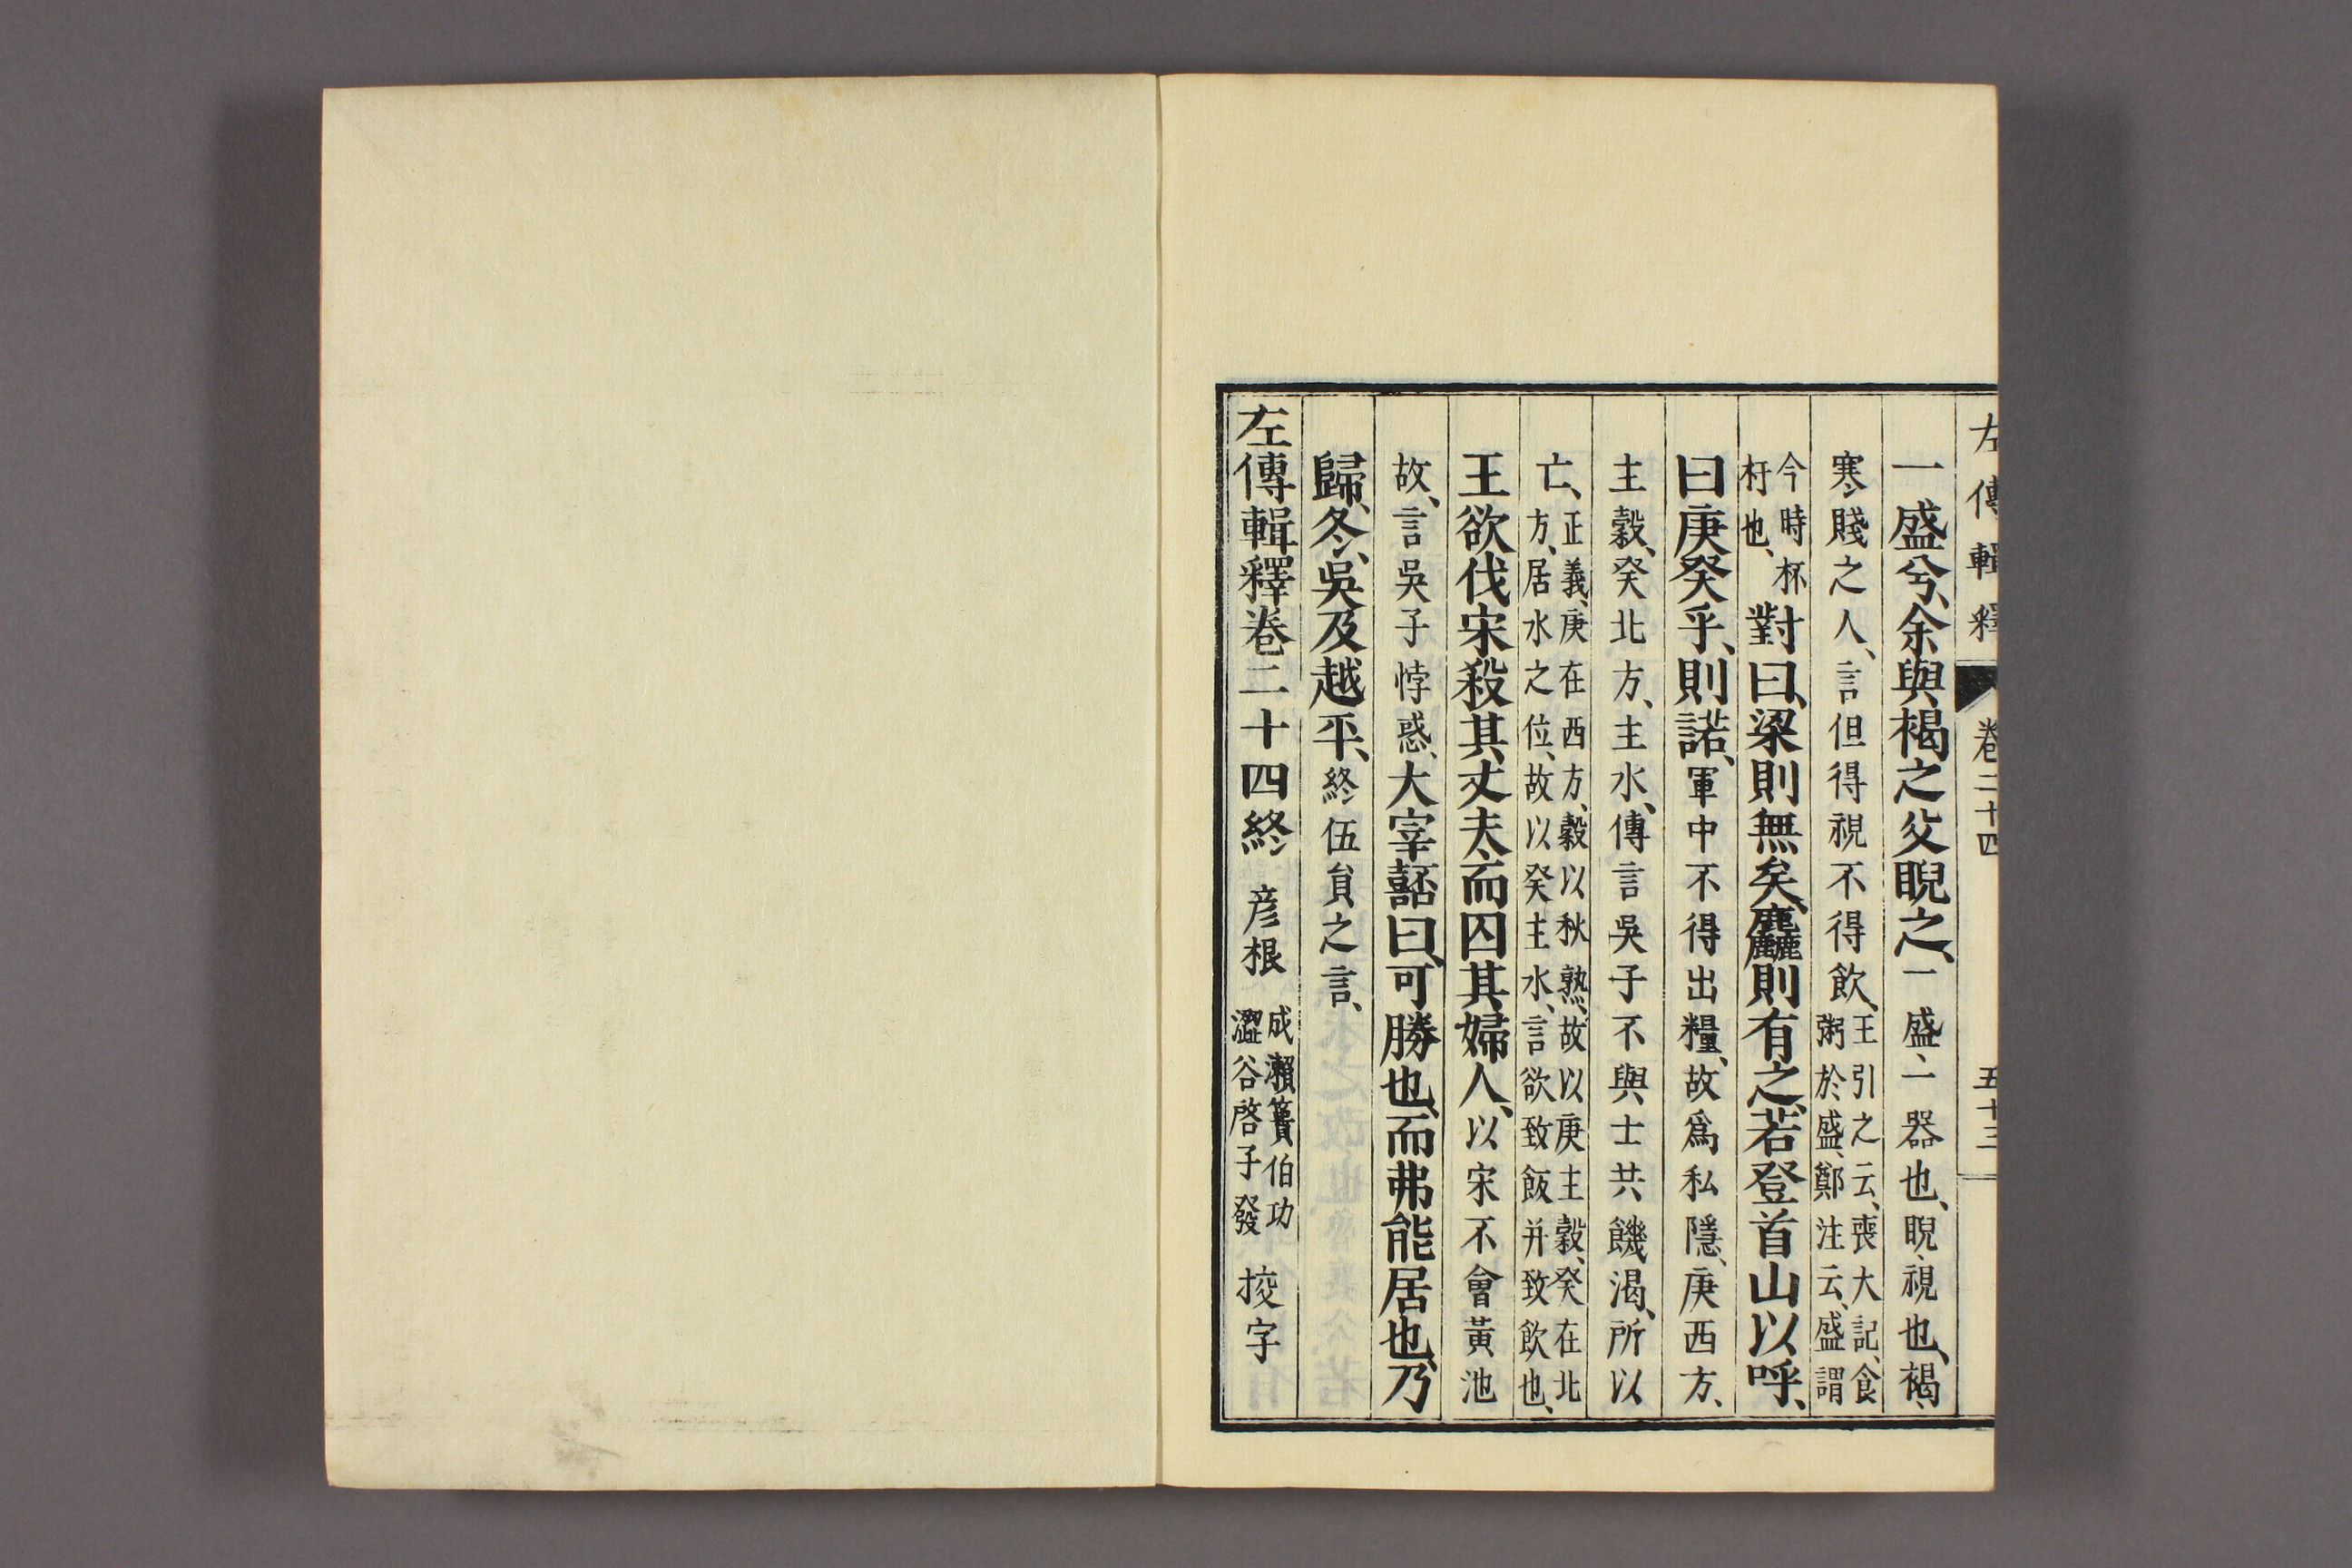 左傳輯釋 卷二十四 五十三
一盛兮、余與褐之父睨之、一盛、一器也、睨、視也、褐、
寒賤之人、言但得視不得飲、王引之云、喪大記、食粥於盛、鄭注云、盛謂
今時杯杅也、對曰、梁則無矣、麤則有之、若登首山以呼、
曰庚癸乎、則諾、軍中不得出糧、故爲私隱、庚西方、
主穀、癸北方、主水、傳言吳子不與士共饑渴、所以
亡、正義、庚在西方、穀以秋熟、故以庚主穀、癸在北方、居水之位、故以癸主水、言欲致飯并致飲也、
王欲伐宋殺其丈夫、而囚其婦人、以宋不會黃池
故、言吳子悖惑、大宰嚭曰、可勝也、而弗能居也、乃
歸、冬、吳及越平、終伍員之言、
左傳輯釋卷二十四終 彦根 成瀨簣伯功 澀谷啓子發 挍字